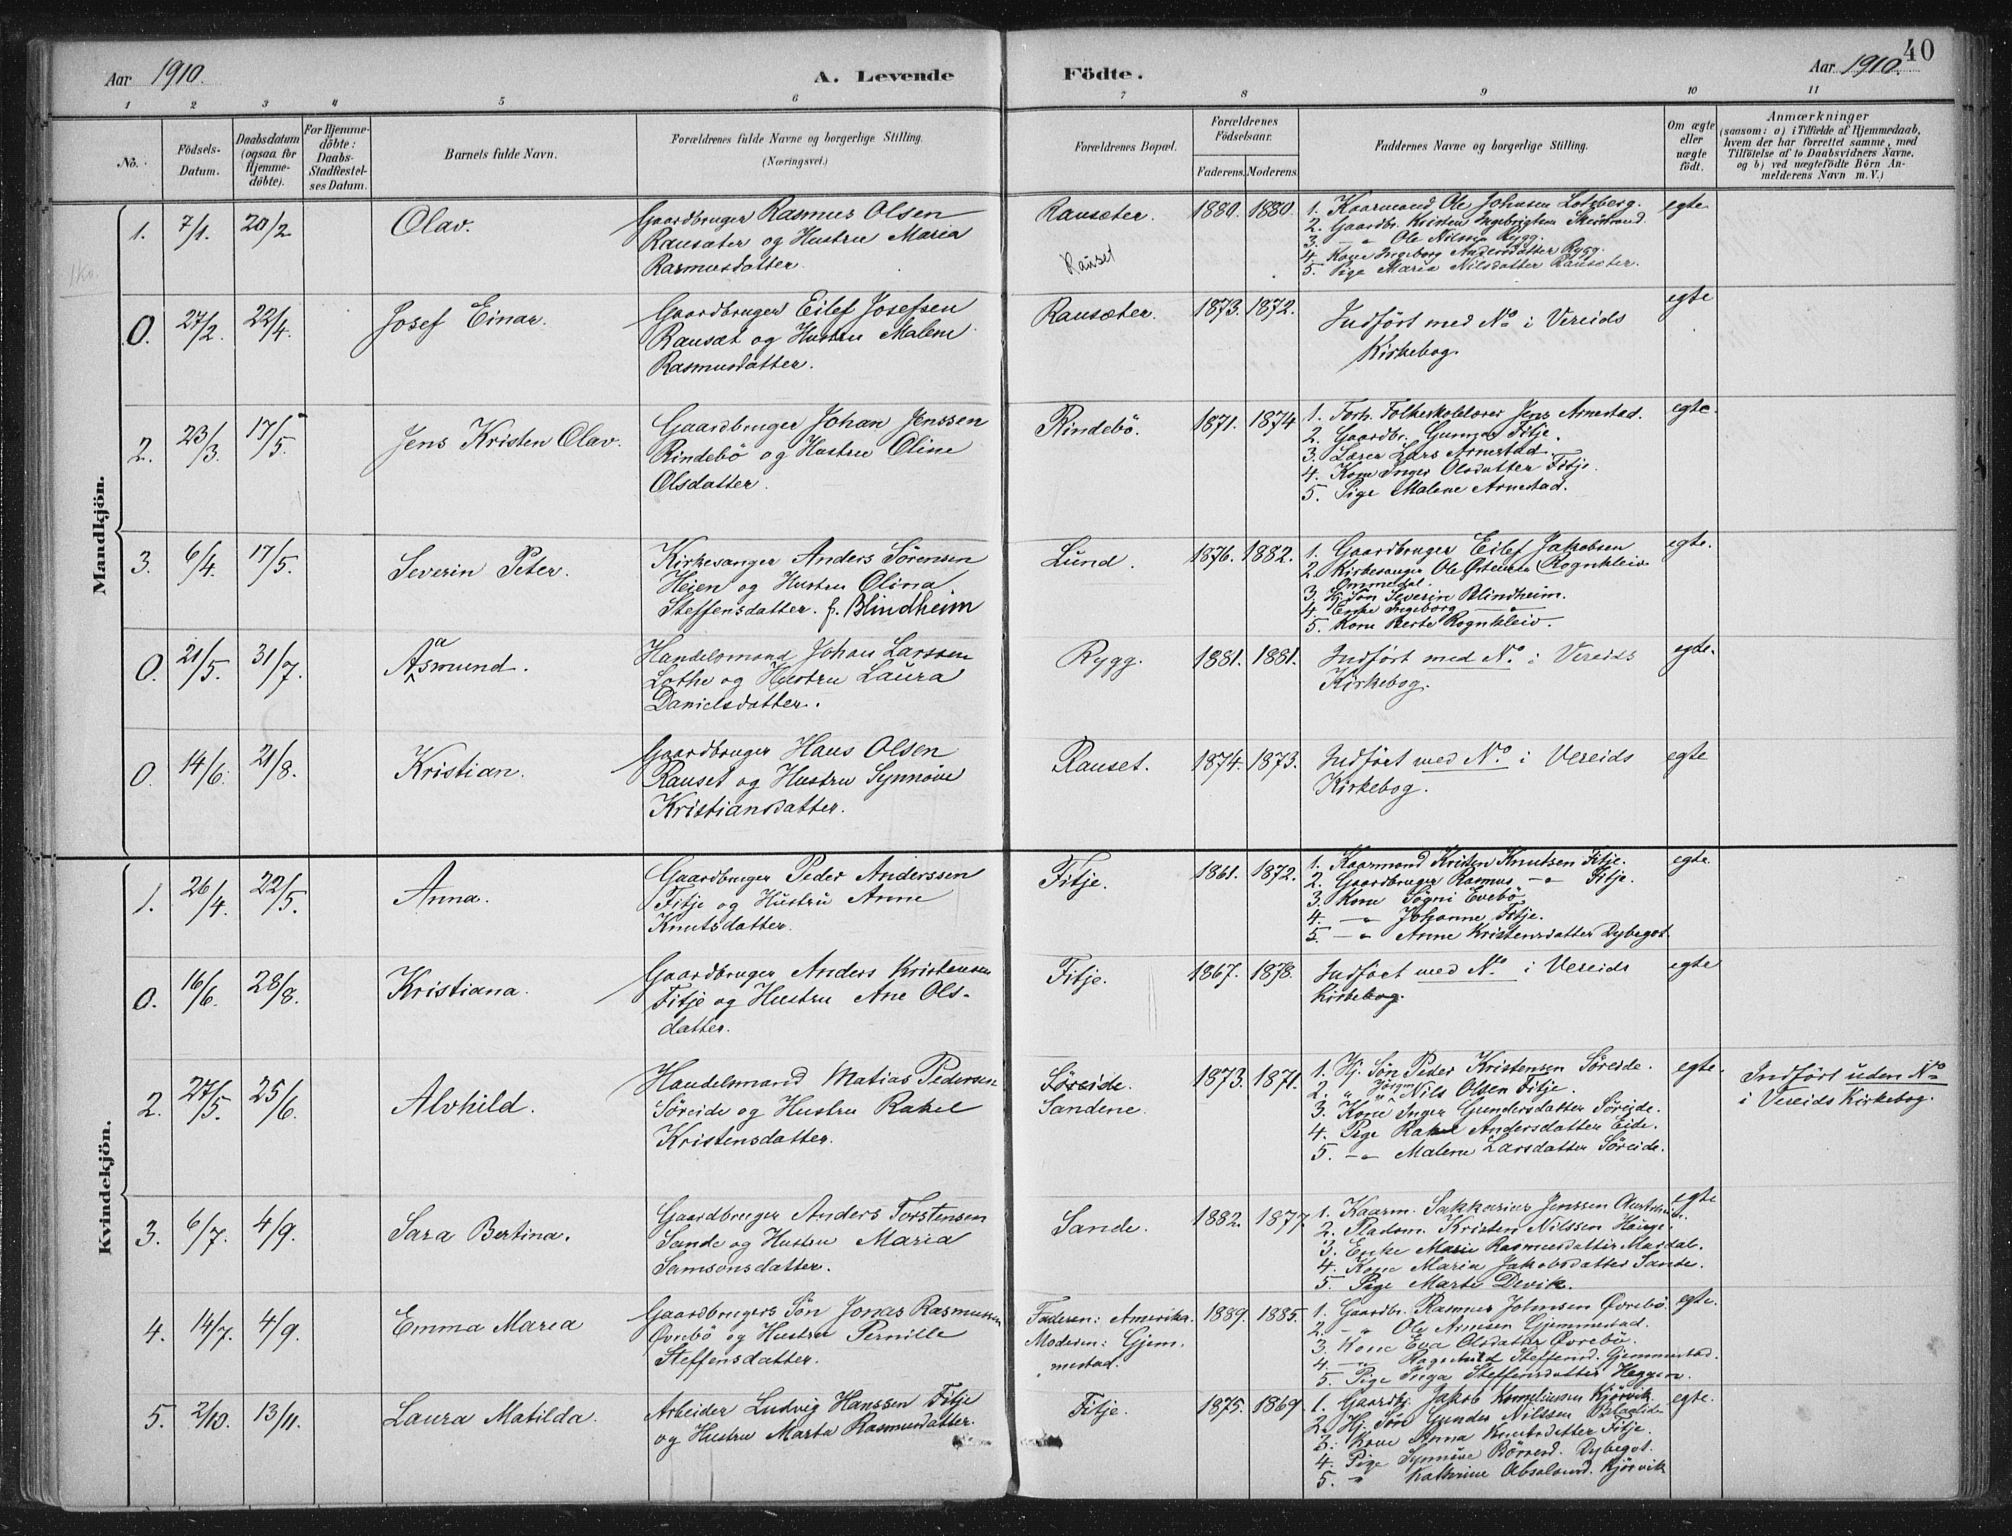 Aar 1910.
A. Levende Födte.
Aar 1910.
40
1 2 3 4 5 6 7 8 9 10 11
No.
Födsels-Datum.
Daabsdatum (ogsaa for Hjemme-döbte).
For Hjemme-döbte: Daabs-Stadfæstel-ses Datum.
Barnets fulde Navn.
Forældrenes fulde Navne og borgerlige Stilling. (Næringsvei.)
Forældrenes Bopæl.
Forældrenes Födselsaar.
Faderens. Moderens.
Faddernes Navne og borgerlige Stilling.
Om ægte eller uægte födt.
Anmærkninger
(saasom: a) i Tilfælde af Hjemmedaab, hvem der har forrettet samme, med Tilföielse af to Daabsvidners Navne, og b) ved uægtefödte Börn An-melderens Navn m. V.)
Mandkjön.
1. 7/1. 20/2 Olav.
Gaardbruger Rasmus Olsen
Rausæter og Hustru Maria
Rasmusdatter.
Rausæter.
Rauset
1880. 1880.
1. Kaarmand Ole Johnsen Lotsberg.
2. Gaardbr. Kristen Ingebrigtsen
3. — " — Ole Nilssen Rygg.
4. Kone Ingeborg Andersdatter Rygg.
5. Pige Maria Nilsdatter Rausæter.
egte
0. 27/2. 22/4. Josef Einar.
Gaardbruger Eilef Josefsen
Rausæt og Hustru Malene
Rasmusdatter.
Rausæter.
1873. 1872.
Indført med No i Vereids
Kirkebog.
egte
2. 23/3. 17/5. Jens Kristen Olav.
Gaardbruger Johan Jenssen
Rindebö og Hustru Oline
Olsdatter.
Rindebö.
1871. 1874
1. Forh. Folkeskolelærer Jens Arnestad.
2. Gaardbr. Gunnar Fitje.
3. Lærer Lars Arnestad.
4. Kone Inger Olsdatter Fitje.
5. Pige Malene Arnestad.
egte.
3. 6/4. 17/5. Severin Peter.
Kirkesanger Anders Sörensen
Heien og Hustru Olina
Steffensdatter. f. Blindheim
Lund.
1876. 1882.
1. Gaardbruger Eilef Jakobsen
2. Kirkesanger Ole Østensen Rognkleiv
Ommedal.
3. Hj. Søn Severin Blindheim.
4. Enke Ingeborg — " —
5. Kone Berte Rognkleiv.
egte.
0. 21/5. 31/7. Aasmund.
Handelsmand Johan Larssen
Lothe og Hustru Laura
Danielsdatter.
Rygg.
1881. 1881.
Indført med No. i Vereids
Kirkebog.
egte.
0. 14/6. 21/8. Kristian.
Gaardbruger Hans Olsen
Rauset og Hustru Synnøve
Kristiansdatter.
Rauset.
1874. 1873.
Indført med No i Vereids
Kirkebog.
egte
Kvindekjön.
1. 26/4. 22/5. Anna.
Gaardbruger Peder Anderssen
Fitje og Hustru Anne
Knutsdatter.
Fitje.
1861. 1872.
1. Kaarmand Kristen Knutsen Fitje.
2. Gaardbruger Rasmus — " — Fitje.
3. Kone Søgni Evebö
4. — " — Johanne Fitje.
5. — " — Anne Kristensdatter Rybegot
egte
0. 16/6. 28/8. Kristiana.
Gaardbruger Anders Kristensen
Fitje og Hustru Ane Ols-
datter.
Fitje.
1867. 1878.
Indført med No. i Vereids
Kirkebog.
egte
2. 27/5. 25/6. Alvhild.
Handelsmand Matias Pedersen
Søreide og Hustru Rakel
Kristensdatter.
Søreide.
Sandene.
1873. 1871.
1. Hj. Søn Peder Kristensen Søreide.
2. " " Jørgen Nils Olsen Fitje.
3. Kone Inger Gundersdatter Søreide.
4. Pige Rakel Andersdatter Eide.
5. — " — Malene Larsdatter Søreide.
egte.
Indført uden No
i Vereids Kirkebog.
3. 6/7. 4/9. Sara Bertina.
Gaardbruger Anders Torstensen
Sande og Hustru Maria
Samsonsdatter.
Sande.
1882. 1877.
1. Kaarm. Sakkarias Jenssen
2. Pladsm. Kristen Nilssen Hauge.
3. Enke Marie Rasmusdatter Mardal.
4. Kone Maria Jakobsdatter Sande.
5. Pige Marte Devik.
egte
4. 14/7. 4/9. Emma Maria
Gaardbrugers Søn Jonas Rasmussen
Øvrebö og Hustru Pernille
Steffensdatter.
Faderen: Amerika.
Moderen: Gjem-
mestad.
1889. 1885.
1. Gaardbr. Rasmus Johnsen Øvrebö.
2. — " — Ole Arnesen Gjemmestad.
3. Kone Eva Olsdatter Øvrebö.
4. — " — Ragnhild Steffensd. Gjemmestad.
5. Pige Inga Steffensdatter Heggen.
egte.
5. 2/10. 13/11. Laura Matilda.
Arbeider Ludvig Hanssen Fitje
og Hustru Marta Rasmusdatter.
Fitje.
1875. 1869.
1. Gaardbr. Jakob Korneliussen Kjørvik
2. Hj. Søn Gunder Nilssen
3. Kone Anna Knutsdatter Fitje.
4. Pige Synnøve Børresd. Rybegot.
5. " Kathrine Absalonsd. Kjørvik
egte.